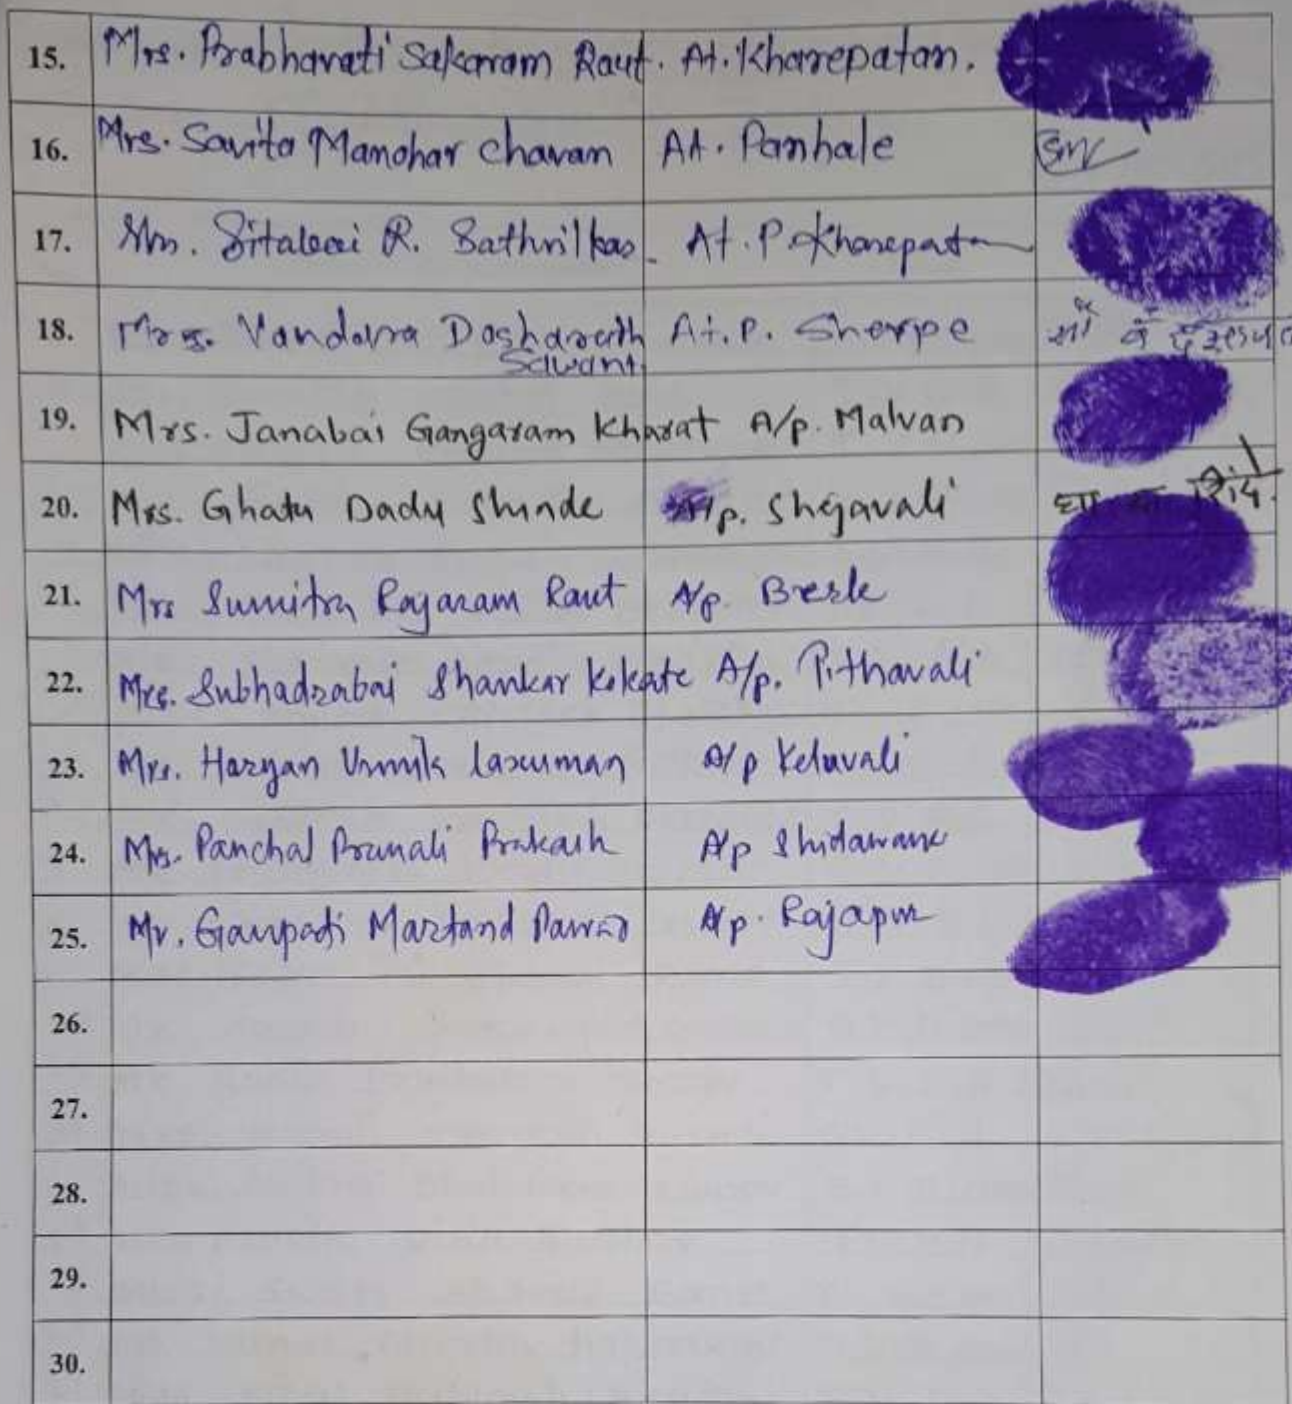 15. Mrs. Prabhavati Sakaram Raut. At. Kharepatan.
16. Mrs. Savita Manohar Chavan At. Panhale
17. Mrs. Sitabai R. At. P. Kharepatan
18. Mrs. Vandana Dasharath At. P. Sherpe
Sawant
19. Mrs. Janabai Gangaram Kharat A/p. Malvan
20. Mrs. Ghatu Dadu Shinde A/p. Shejavali
21. Mrs Sumitra Rajaram Raut A/p. Berle
22. Mrs. Subhadrabai Shankar Kokate A/p. Pithavali
23. Mrs. Haryan Laxuman A/p Keluvali
24. Mrs. Panchal Pranali Prakash A/p Shidawane
25. Mr. Ganpati Martand Pawar A/p. Rajapur
26.
27.
28.
29.
30.